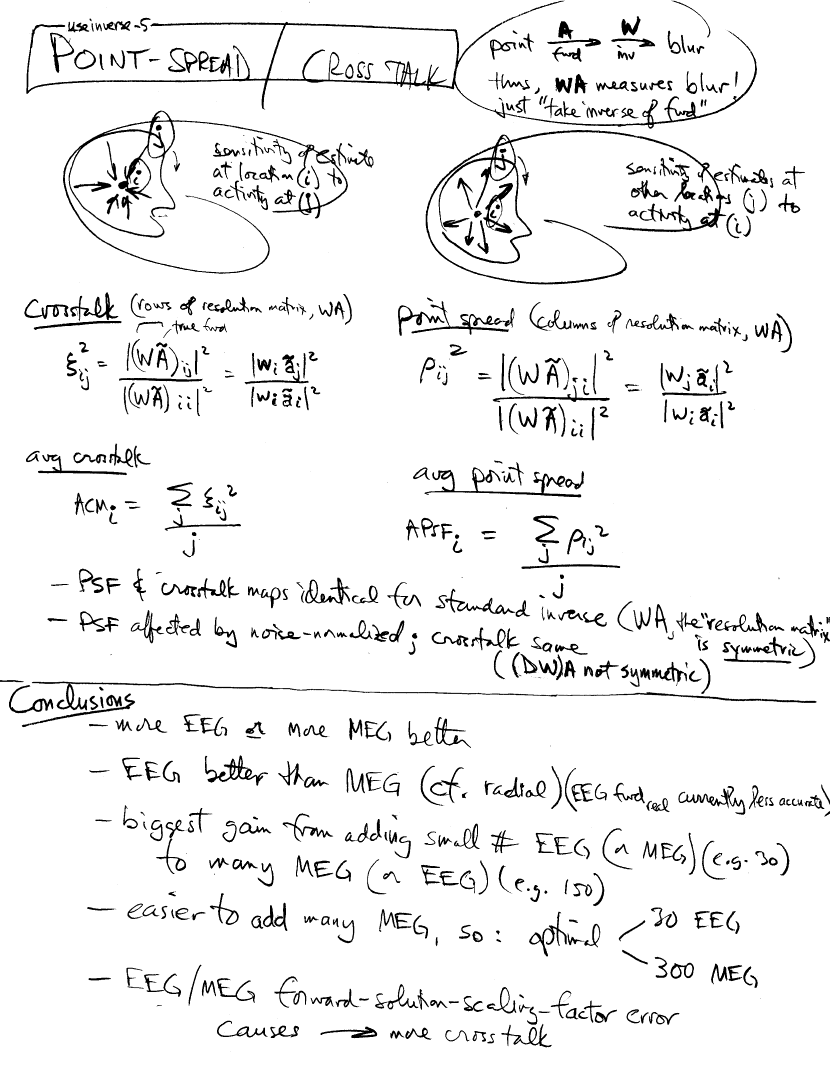 use inverse-5
POINT-SPREAD / CROSS TALK
point A fwd → W inv → blur
thus, WA measures blur!
just "take inverse of fwd"
j
i
sensitivity of estimate
at location (i) to
activity at (j)
j
i
sensitivity of estimates at
other locations (j) to
activity at (i)
Crosstalk (rows of resolution matrix, WA)
true fwd
ξij² = |(WÃ)ij|² / |(WÃ)ii|² = |wi ãj|² / |wi ãi|²
point spread (columns of resolution matrix, WA)
ρij² = |(WÃ)ji|² / |(WÃ)ii|² = |wj ãi|² / |wi ãi|²
avg crosstalk
ACMi = Σj ξij² / j
avg point spread
APSFi = Σj ρij² / j
— PSF & crosstalk maps identical for standard inverse (WA, the "resolution matrix"
is symmetric)
— PSF affected by noise-normalized; crosstalk same
((DW)A not symmetric)
Conclusions
— more EEG or more MEG better
— EEG better than MEG (cf. radial) (EEG fwd real currently less accurate)
— biggest gain from adding small # EEG (or MEG) (e.g. 30)
to many MEG (or EEG) (e.g. 150)
— easier to add many MEG, so: optimal < 30 EEG
300 MEG
— EEG/MEG forward-solution-scaling-factor error
causes → more cross talk